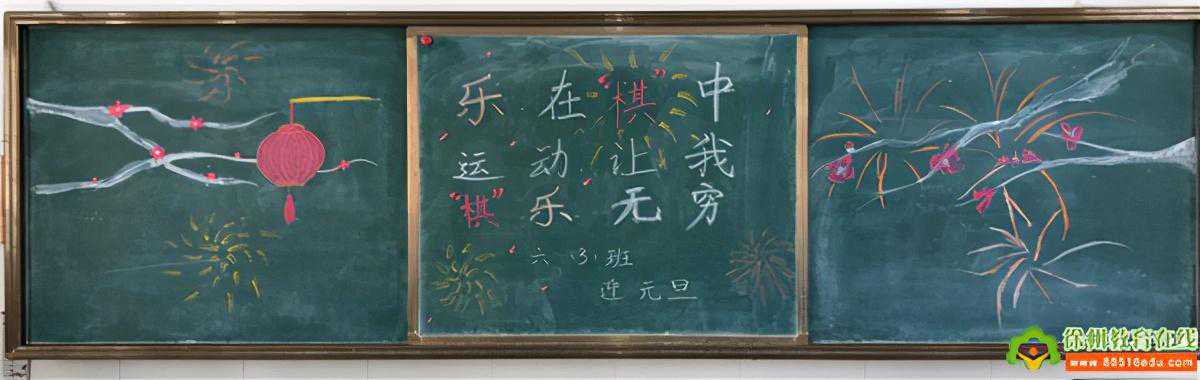 乐在“棋”中
运动让我
“棋”乐无穷
六(3)班
迎元旦
徐州教育在线